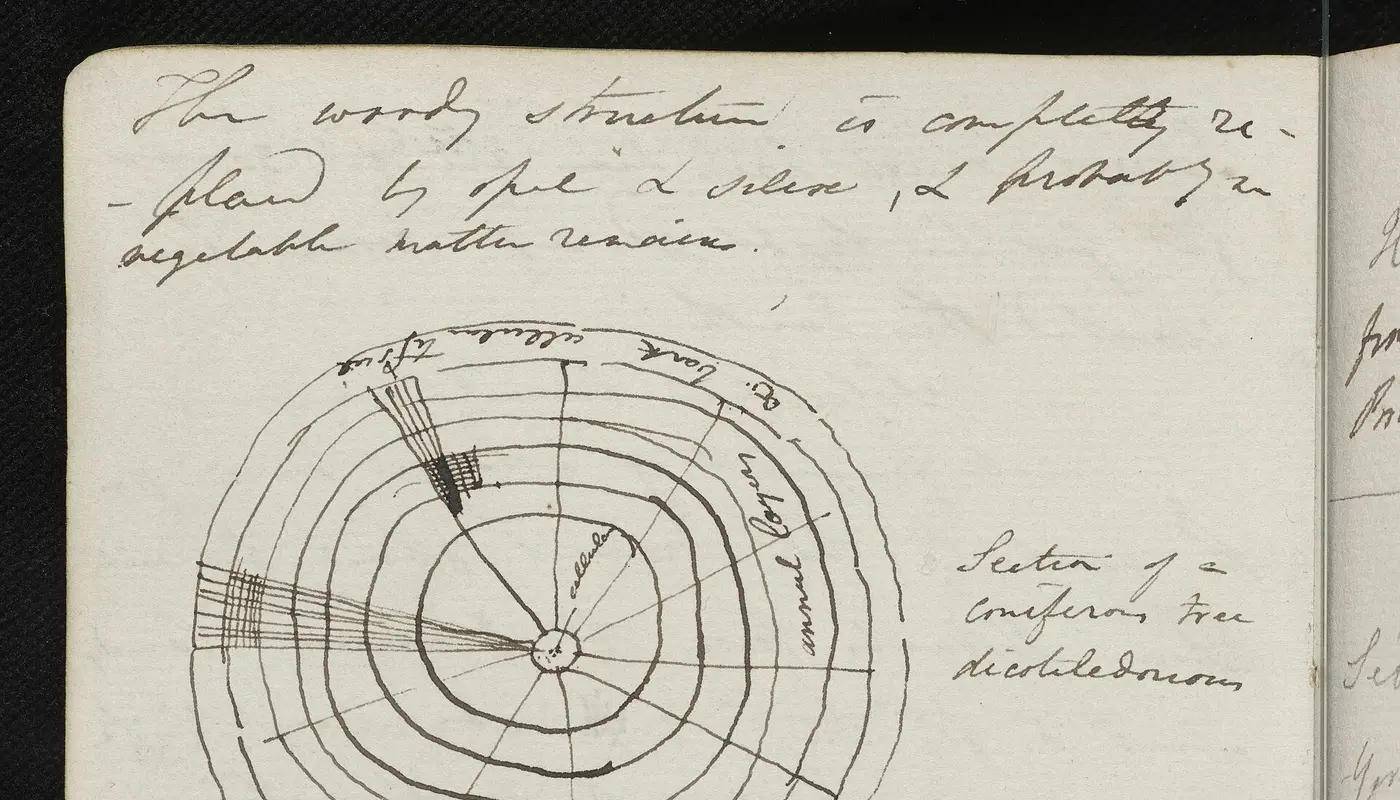 The woody structure is completely re-
- placed by opal & silex, & probably no
vegetable matter remains.
bark cellular tissue
annual layers
cellular
Section of a
coniferous tree
dicotiledonous